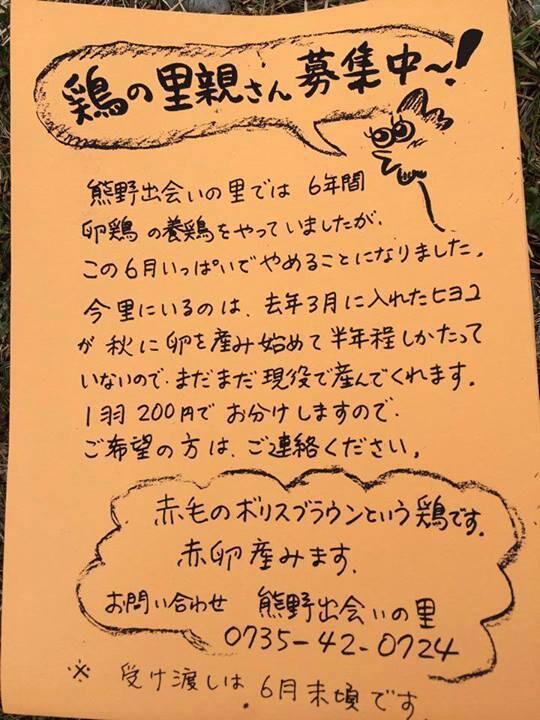 鶏の里親さん募集中〜!
熊野出会いの里では 6年間
卵鶏の養鶏をやっていましたが、
この6月いっぱいでやめることになりました。
今里にいるのは、去年3月に入れたヒヨコ
が秋に卵を産み始めて半年程しかたって
いないので、まだまだ現役で産んでくれます。
1羽200円でお分けしますので、
ご希望の方は、ご連絡ください。
赤毛のボリスブラウンという鶏です。
赤卵産みます。
お問い合わせ 熊野出会いの里
0735-42-0724
※ 受け渡しは、6月末頃です